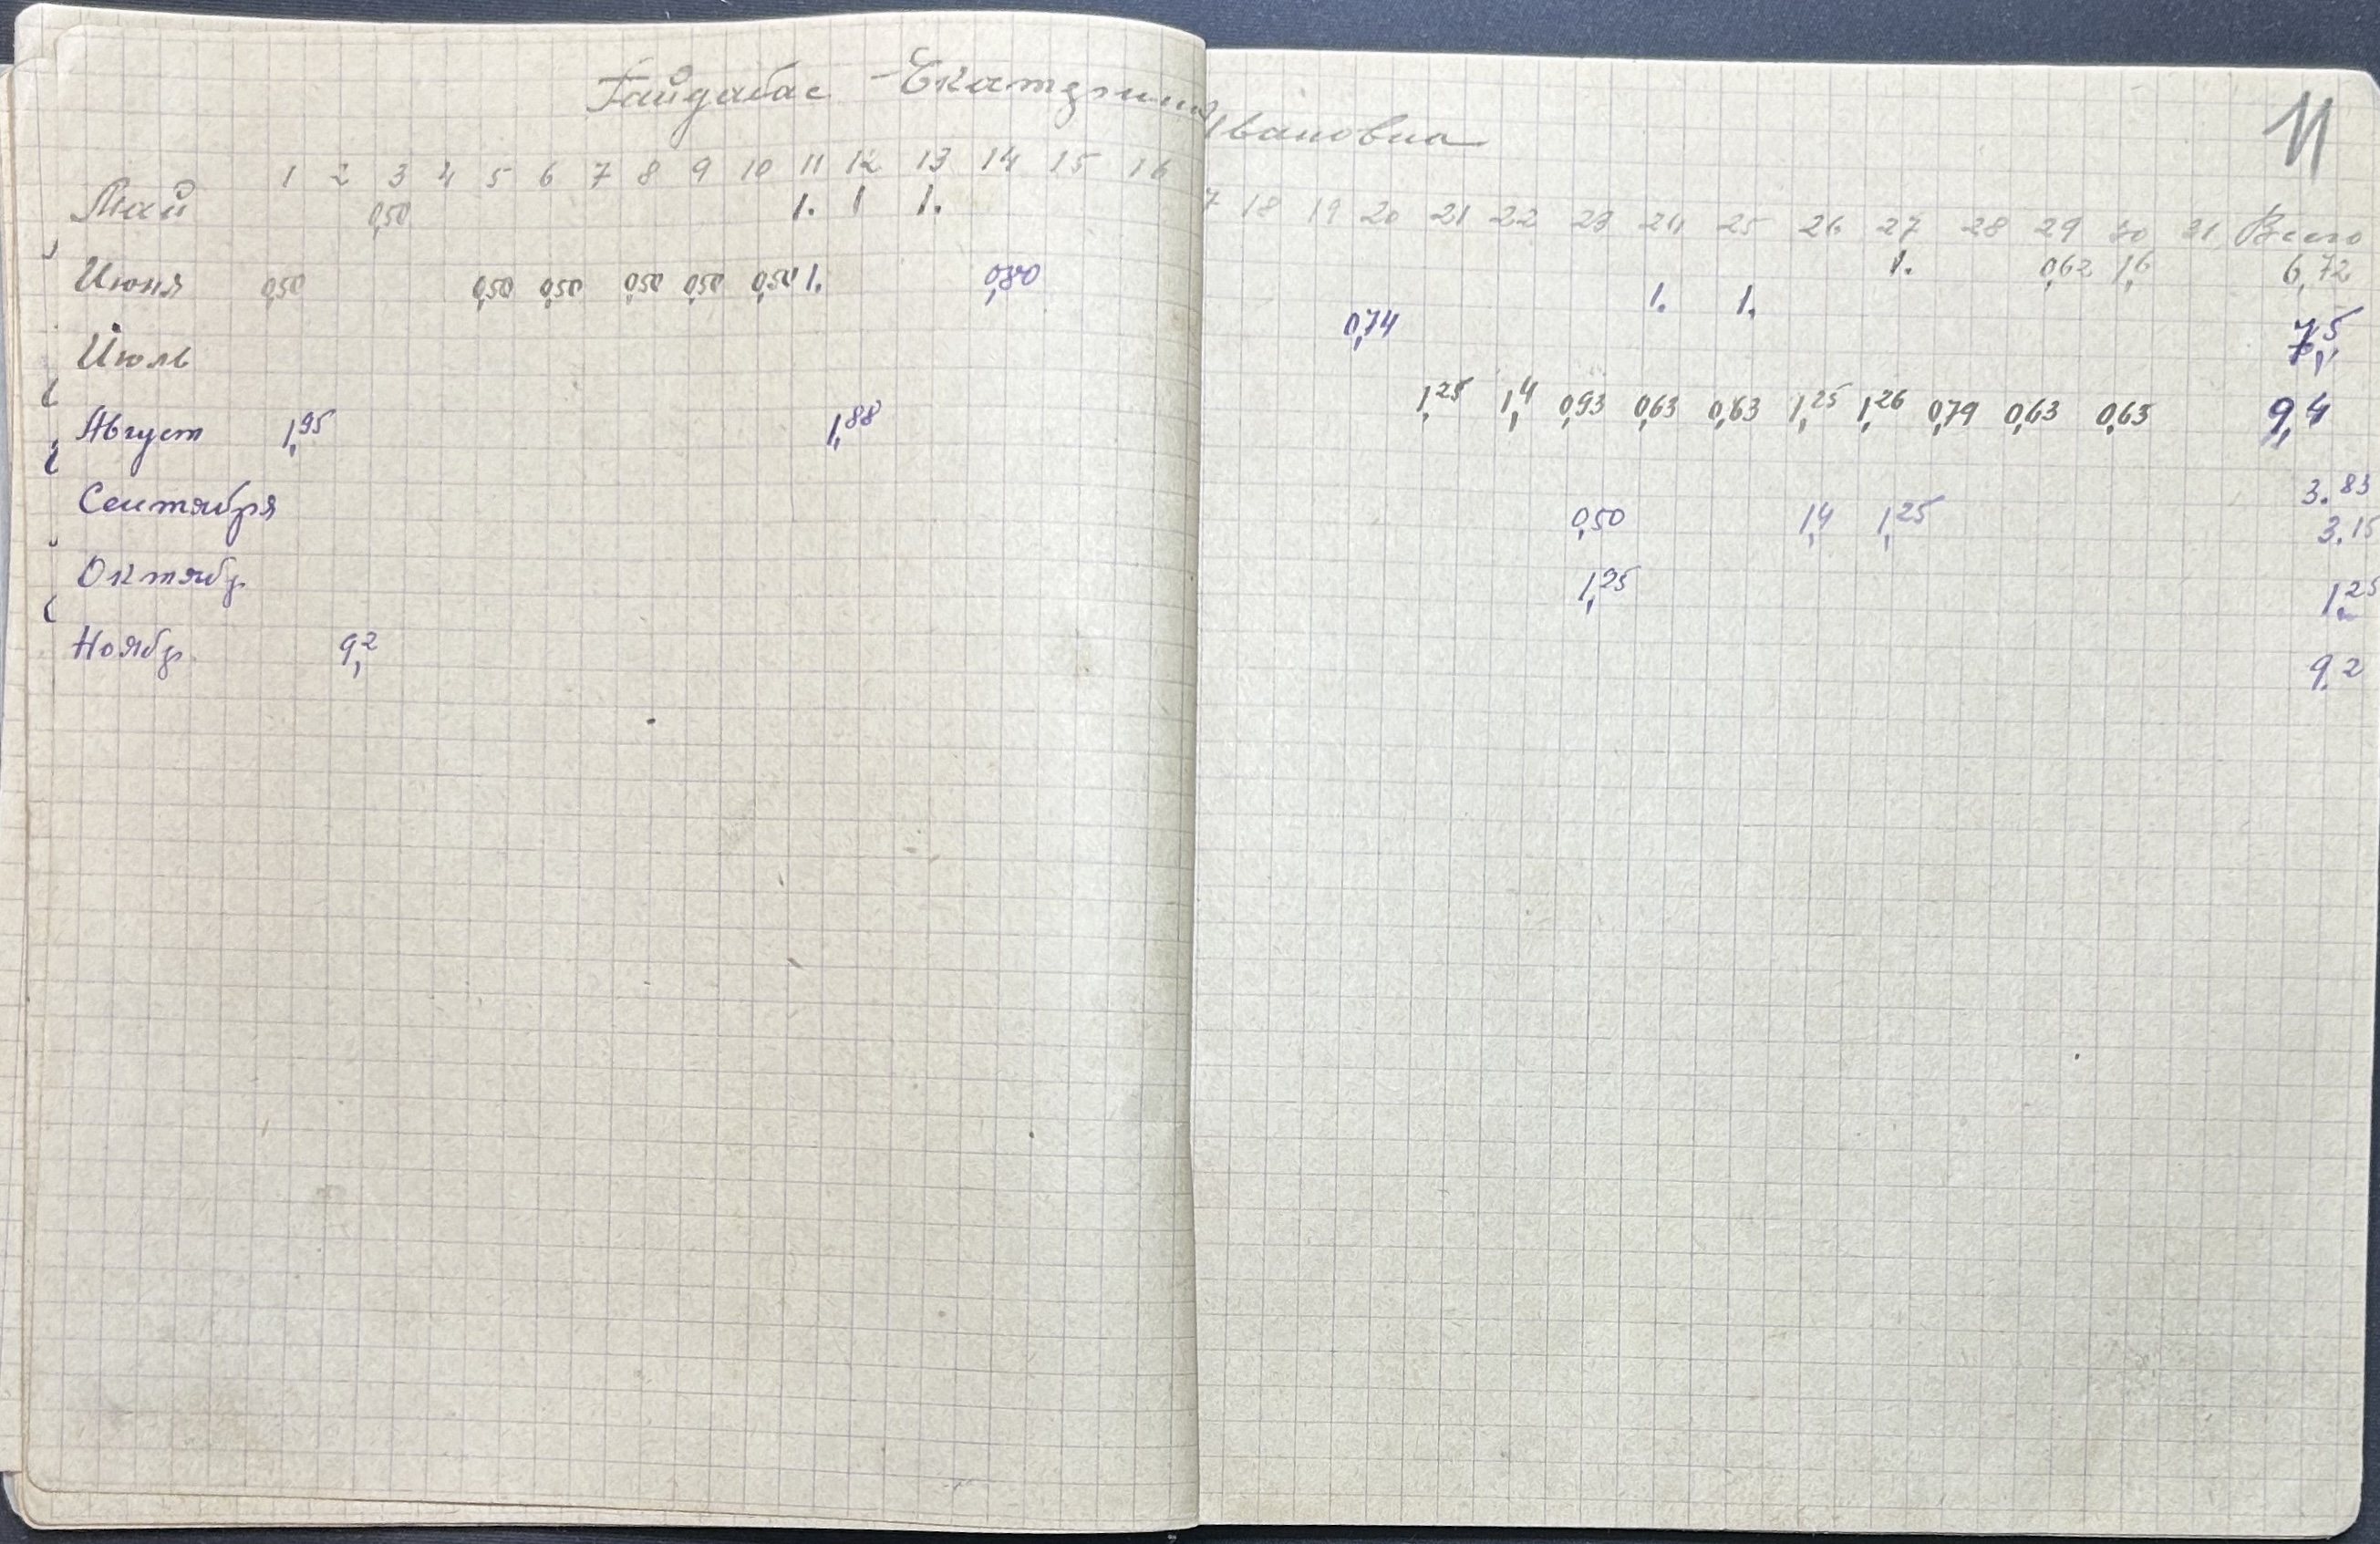 Гайдабас Екатерина Ивановна
11
1 2 3 4 5 6 7 8 9 10 11 12 13 14 15 16 17 18 19 20 21 22 23 24 25 26 27 28 29 30 31 Всего
Май 0,50 1. 1 1. 1. 0,62 1,6 6,72
Июня 0,50 0,50 0,50 0,50 0,50 0,50 1. 0,80 1. 1. 7,5
Июль 0,74 1,25 1,4 0,93 0,63 0,63 1,25 1,26 0,79 0,63 0,63 9,4
Август 1,95 1,88 3.83
Сентября 0,50 1,4 1,25 3.15
Октябр 1,25 1,25
Ноябр. 9,2 9.2